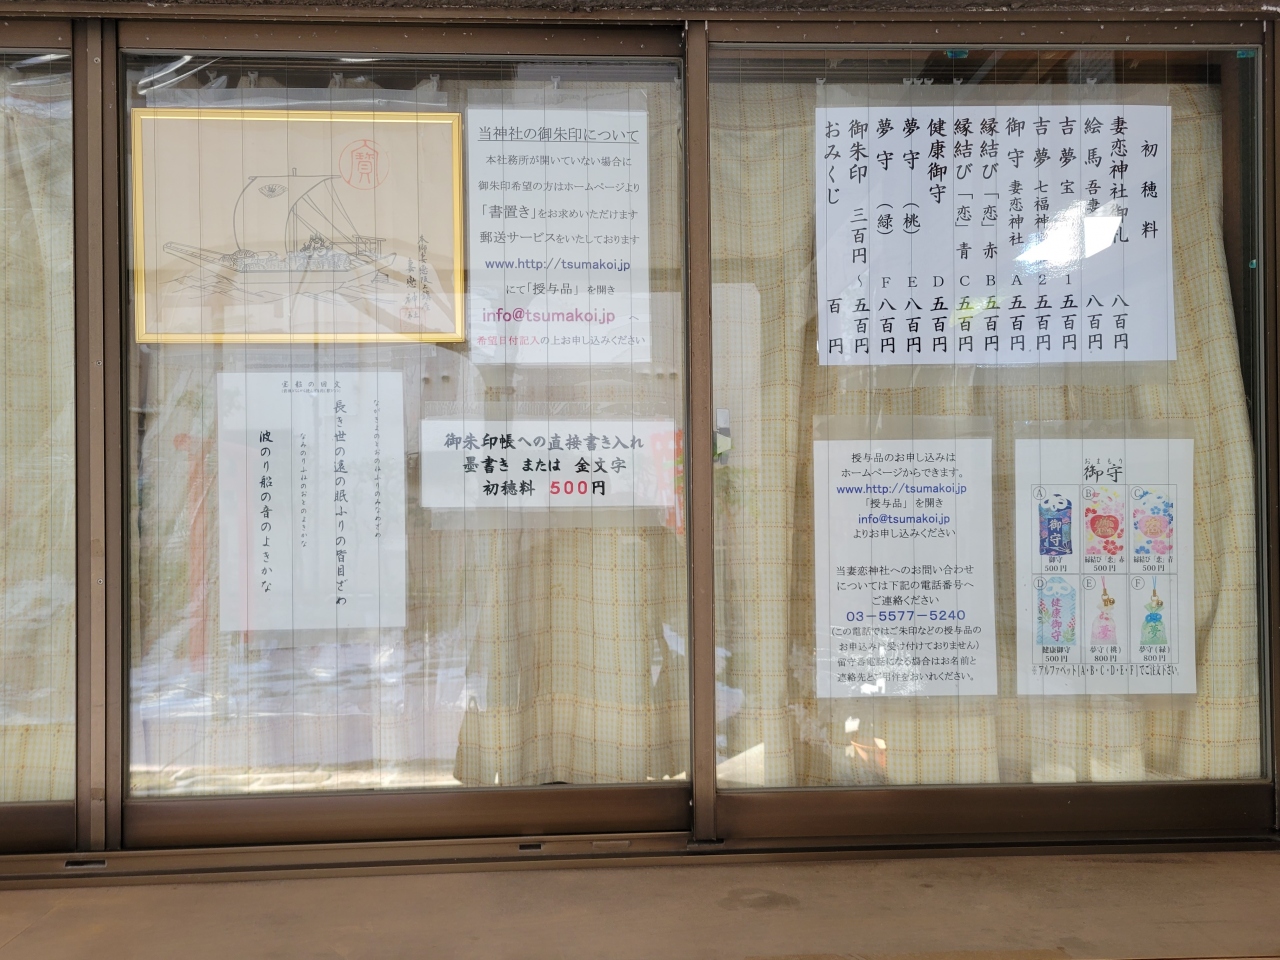 当神社の御朱印について
本社務所が開いていない場合に
御朱印希望の方はホームページより
「書置き」をお求めいただけます
郵送サービスをいたしております
www.http://tsumakoi.jp
にて「授与品」を開き
info@tsumakoi.jp へ
希望日付記入の上お申し込みください
宝船の回文
ながきよのとおのねふりのみなめざめ
長き世の遠の眠ふりの皆目ざめ
なみのりふねのおとのよきかな
波のり船の音のよきかな
御朱印帳への直接書き入れ
墨書き または 金文字
初穂料 500円
初穂料
妻恋神社御札 八百円
絵馬 吾妻 八百円
吉夢 宝 1 五百円
吉夢 七福神 2 五百円
御守 妻恋神社 A 五百円
縁結び「恋」赤 B 五百円
縁結び「恋」青 C 五百円
健康御守 D 五百円
夢守(桃) E 八百円
夢守(緑) F 八百円
御朱印 三百円~五百円
おみくじ 百円
授与品のお申し込みは
ホームページからできます。
www.http://tsumakoi.jp
「授与品」を開き
info@tsumakoi.jp
よりお申し込みください
当妻恋神社へのお問い合わせ
については下記の電話番号へ
ご連絡ください
03-5577-5240
(この電話ではご朱印などの授与品の
お申込みは受け付けておりません)
留守番電話になる場合はお名前と
連絡先とご用件をおいれください。
おまもり
御守
A
御守
御守
500円
B
縁結び「恋」赤
500円
C
縁結び「恋」青
500円
D
健康御守
健康御守
500円
E
夢守(桃)
800円
F
夢守(緑)
800円
※アルファベット「A・B・C・D・E・F」でご注文下さい。